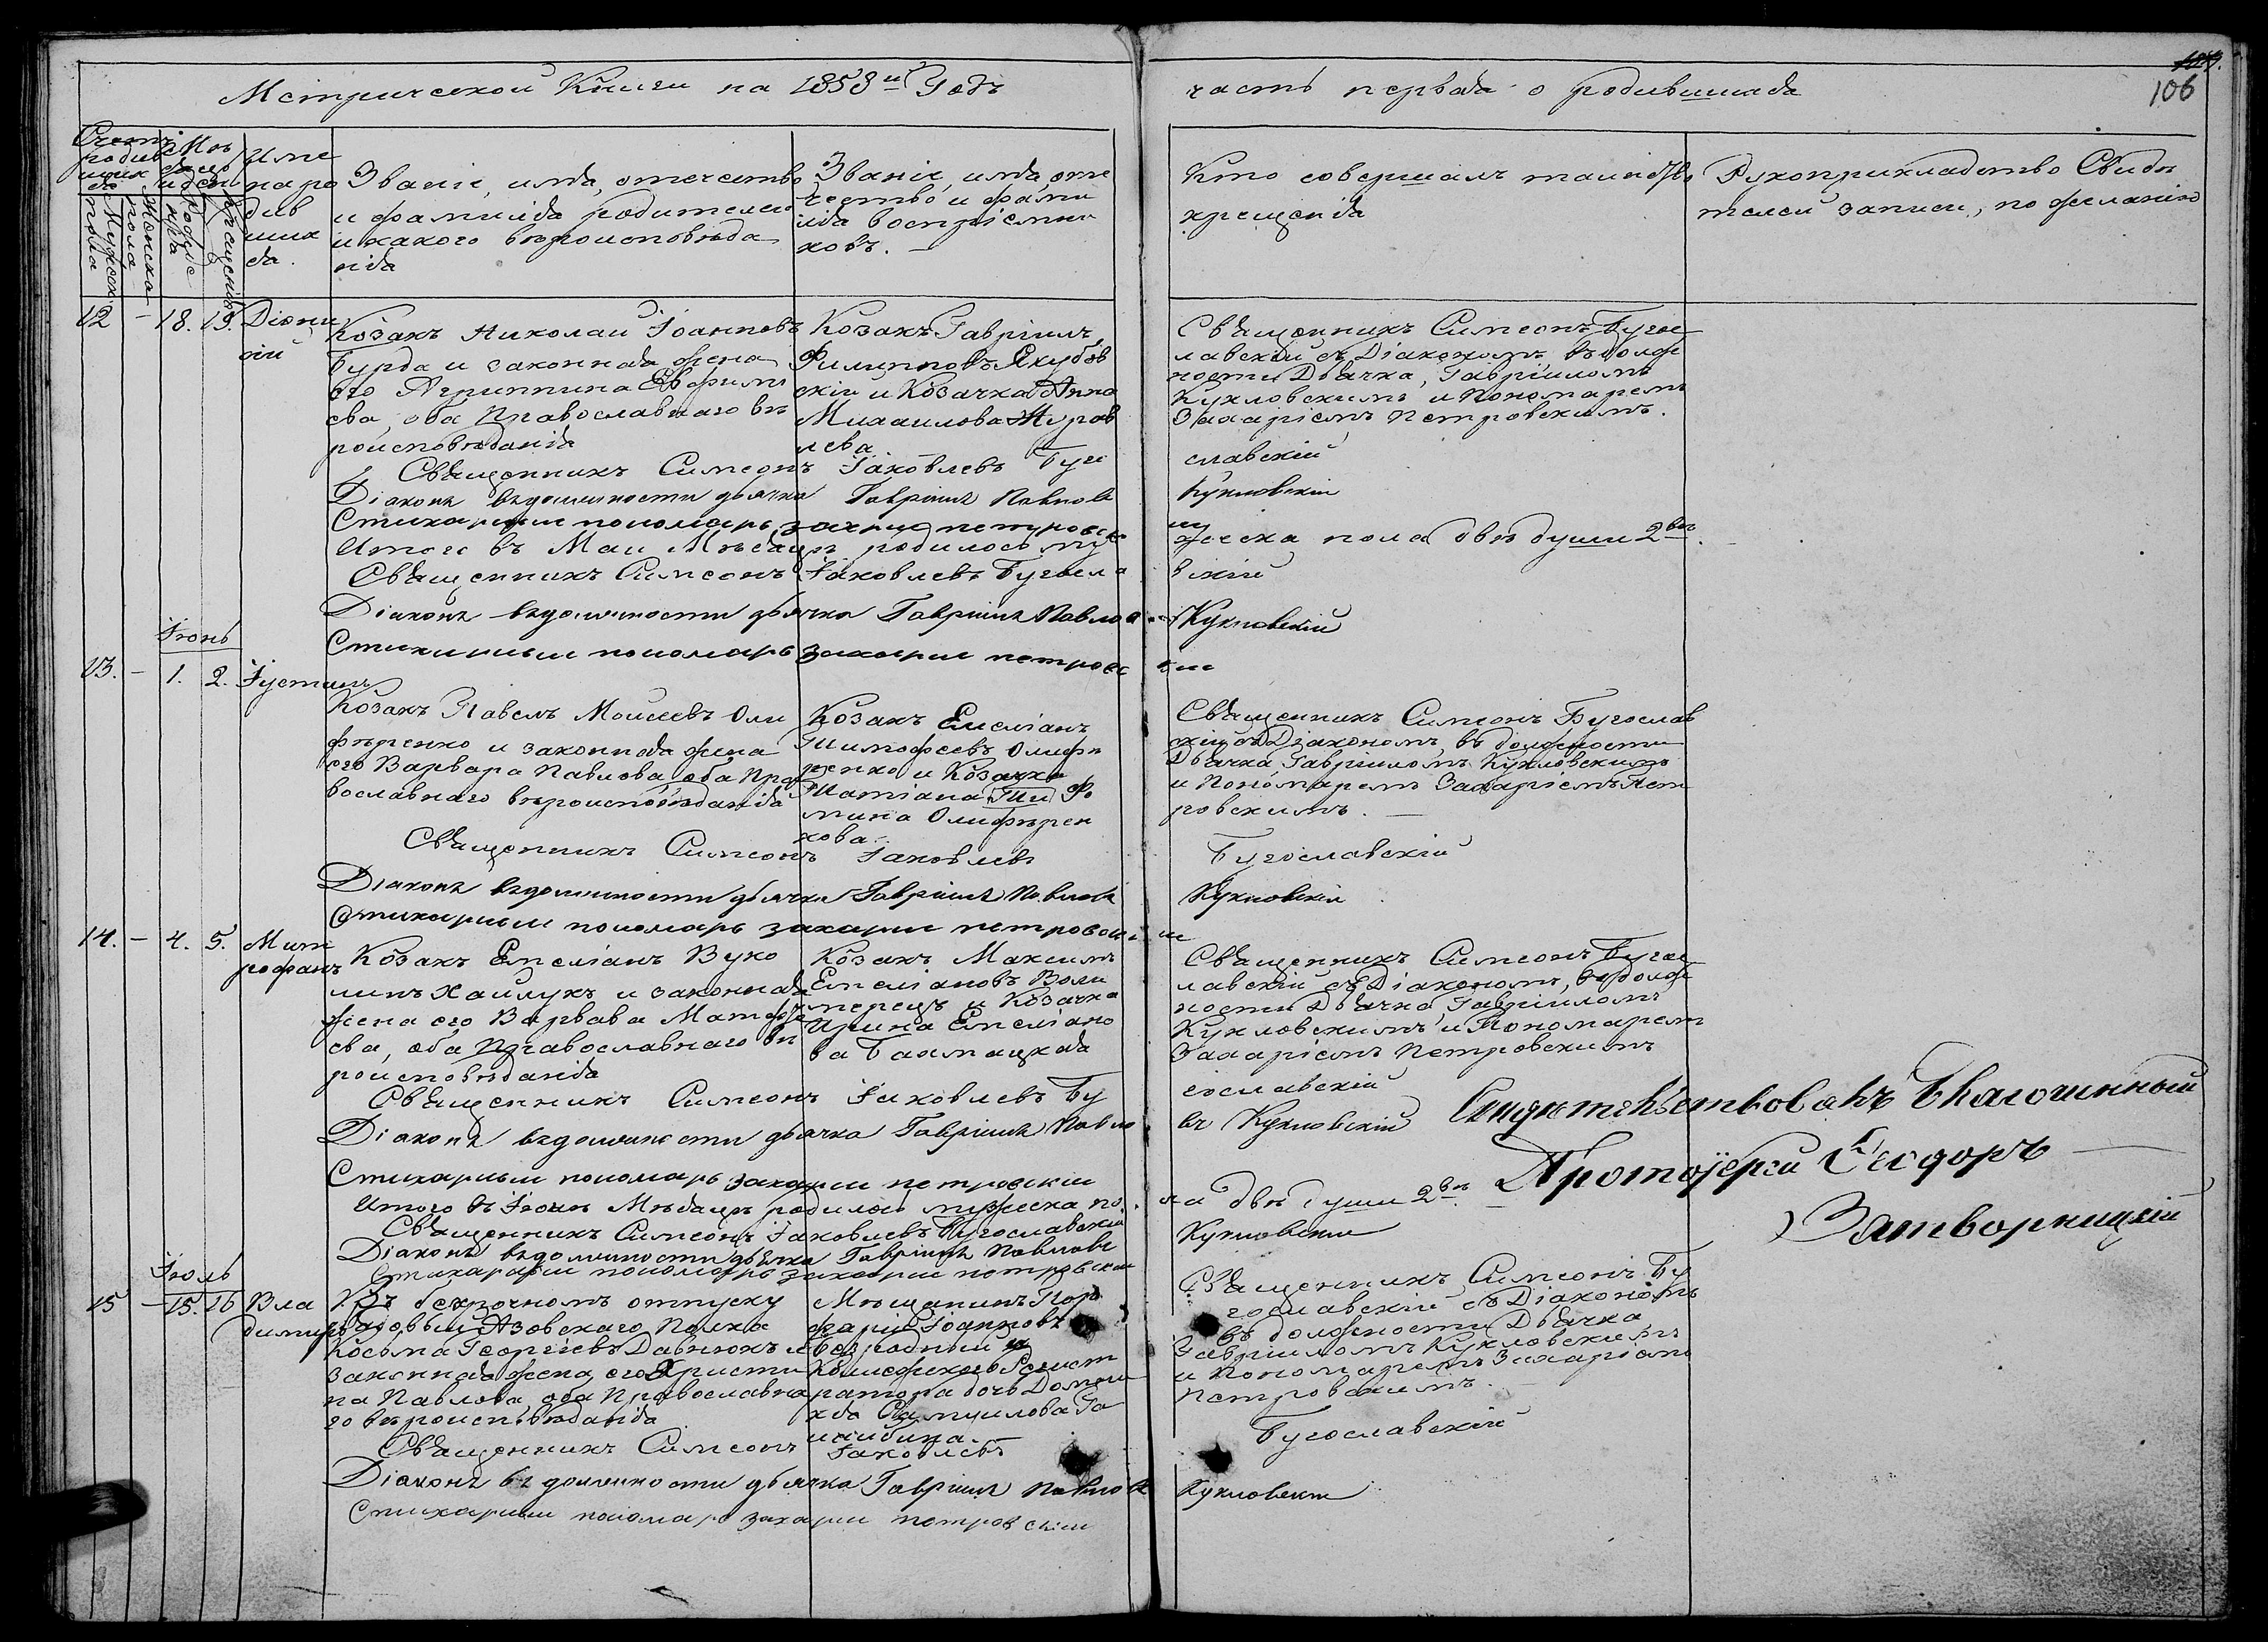 Метрической Книги на 1858й Годъ
часть первая о родившихся
106
Счетъ родив шихся
Мѣсяцъ и день
Име на ро див ших ся.
Мужеска пола
Женска пола
Рожде нія
Крещенія
Званіе, имя, отечество
и фамилія родителей
и какого вѣроисповѣда
нія
Званіе, имя, оте
чество и фами
лія воспріемни
ковъ.
Кто совершалъ таинство
крещенія
Рукоприкладство Свидѣ
телей записи, по желанію
12 - 18. 19. Діони
сій
Козакъ Николай Іоанновъ
Бурда и законная жена
его Агриппина Евфимі
ева, оба Православнаго вѣ
роисповѣданія
Козакъ Гавріилъ
Филипповъ Якубов
скій и Козачка Анна
Михаилова Журав
лева
Священникъ Симеонъ Бугос
лавскій съ Діакономъ, въ долж
ности Дьячка, Гавріиломъ
Кукловскимъ и Пономаремъ
Захаріемъ Петровскимъ.
Священникъ Симеонъ Іаковлевъ Буго
славскій
Діаконъ въ должности дьячка Гавріилъ Павловъ
Кукловскій
Стихарный пономарь Захарий петровск
ий
Итого въ Маи Мѣсяцѣ родилось му
жеска пола двѣ души 2вѣ.
Священникъ Симеонъ Іаковлевъ Бугосла
вскій
Діаконъ въ должности дьячка Гавріилъ Павлов
Кукловскій
Стихарный пономарь Захарий петровс
кий
Іюнь
13. - 1. 2. Іустинъ
Козакъ Павелъ Моисеевъ Оли
фѣренко и законная жена
его Варвара Павлова, оба Пра
вославнаго вѣроисповѣданія
Козакъ Емеліанъ
Тимофеевъ Олифѣ
ренко и Козачка
Татіана Ти Фо
мина Олифѣрен
кова.
Священникъ Симеонъ Бугослав
скій съ Діакономъ, въ должности
Дьячка Гавріиломъ Кукловскимъ
и Пономаремъ Захаріемъ Пет
ровскимъ.
Священникъ Симеонъ Іаковлевъ
Бугославскій
Діаконъ въ должности дьячка Гавріилъ Павловъ
Кукловскій
Стихарный пономарь захарий петровск
ий
14. - 4. 5. Мит
рофанъ
Козакъ Емеліанъ Вуко
линъ Хайлукъ и законная
жена его Варвава Матфе
ева, оба Православнаго вѣ
роисповѣданія
Козакъ Максимъ
Емеліановъ Воли
терецъ и Козачка
Ирина Емеліано
ва Бахмацкая
Священникъ Симеонъ Бугос
лавскій съ Діакономъ, въ долж
ности Дьячка Гавріиломъ
Кукловскимъ и Пономаремъ
Захаріемъ Петровскимъ
Священникъ Симеонъ Іаковлевъ Бу
гославскій
Діаконъ въ должности дьячка Гавріилъ Павло
въ Кукловскій
Стихарный пономарь захарии петровский
Итого въ Іюнѣ Мѣсяцѣ родилось мужеска по
ла двѣ души 2вѣ
Священникъ Симеонъ Іаковлевъ Бугославскій
Діаконъ въ должности дьячка Гавріилъ Павловъ
Кукловскій
Стихарный пономарь захарии петровский
Свидѣтельствовалъ Благочинный
Протоіерей Ѳеодоръ
Затворницкій
Іюль
15 - 15. 16 Вла
димиръ
Въ безсрочномъ отпуску
рядовый Азовскаго Полка
Косьма Георгіевъ Давнюкъ и
законная жена его Христи
на Павлова, оба Православна
го вѣроисповѣданія
Мѣщанинъ
Іоанновъ
Коллежскаго Регист
ратора дочь Домни
кія Самуилова
Священникъ Симеонъ Бу
гославскій съ Діакономъ
въ должности Дьячка,
Гавріиломъ Кукловскимъ
и Пономаремъ Захаріемъ
Петровскимъ.
Священникъ Симеонъ Іаковлевъ
Бугославскій
Діаконъ въ должности дьячка Гавріилъ Павловъ
Кукловскій
Стихарный пономарь захарии петровский